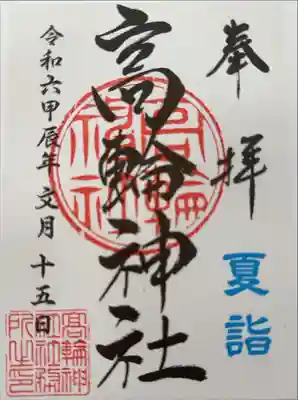 奉拝
夏詣
高輪神社
令和六甲辰年文月十五日
高輪神
社社務
所之印